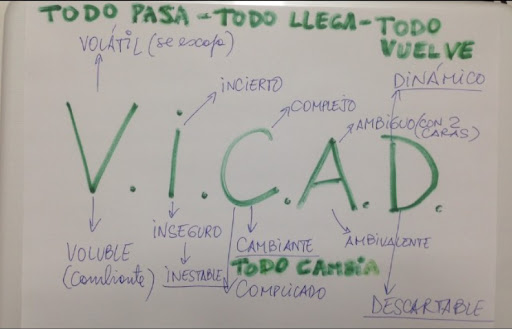 TODO PASA - TODO LLEGA - TODO
VUELVE
VOLÁTIL (se escapa)
INCIERTO
COMPLEJO
DINÁMICO
AMBIGUO (CON 2
CARAS)
V.i.C.A.D.
VOLUBLE
(Cambiante)
INSEGURO
INESTABLE
CAMBIANTE
TODO CAMBIA
COMPLICADO
AMBIVALENTE
DESCARTABLE